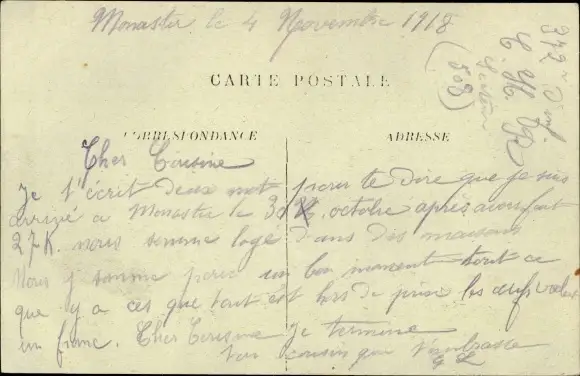 Monastir le 4 Novembre 1918
CARTE POSTALE
CORRESPONDANCE
ADRESSE
Cher Cousine
Je t'écrit deux mot pour te dire que je suis
arrivé a Monastir le 30 octobre après avoir fait
27K. nous somme logé dans des maisons
Nous y somme pour un bon moment tout ce
que y a ces que tout est hors de prix les œufs valent
un franc. Cher Cousine je termine
Ton cousin qui t'embrasse
G L
(503)